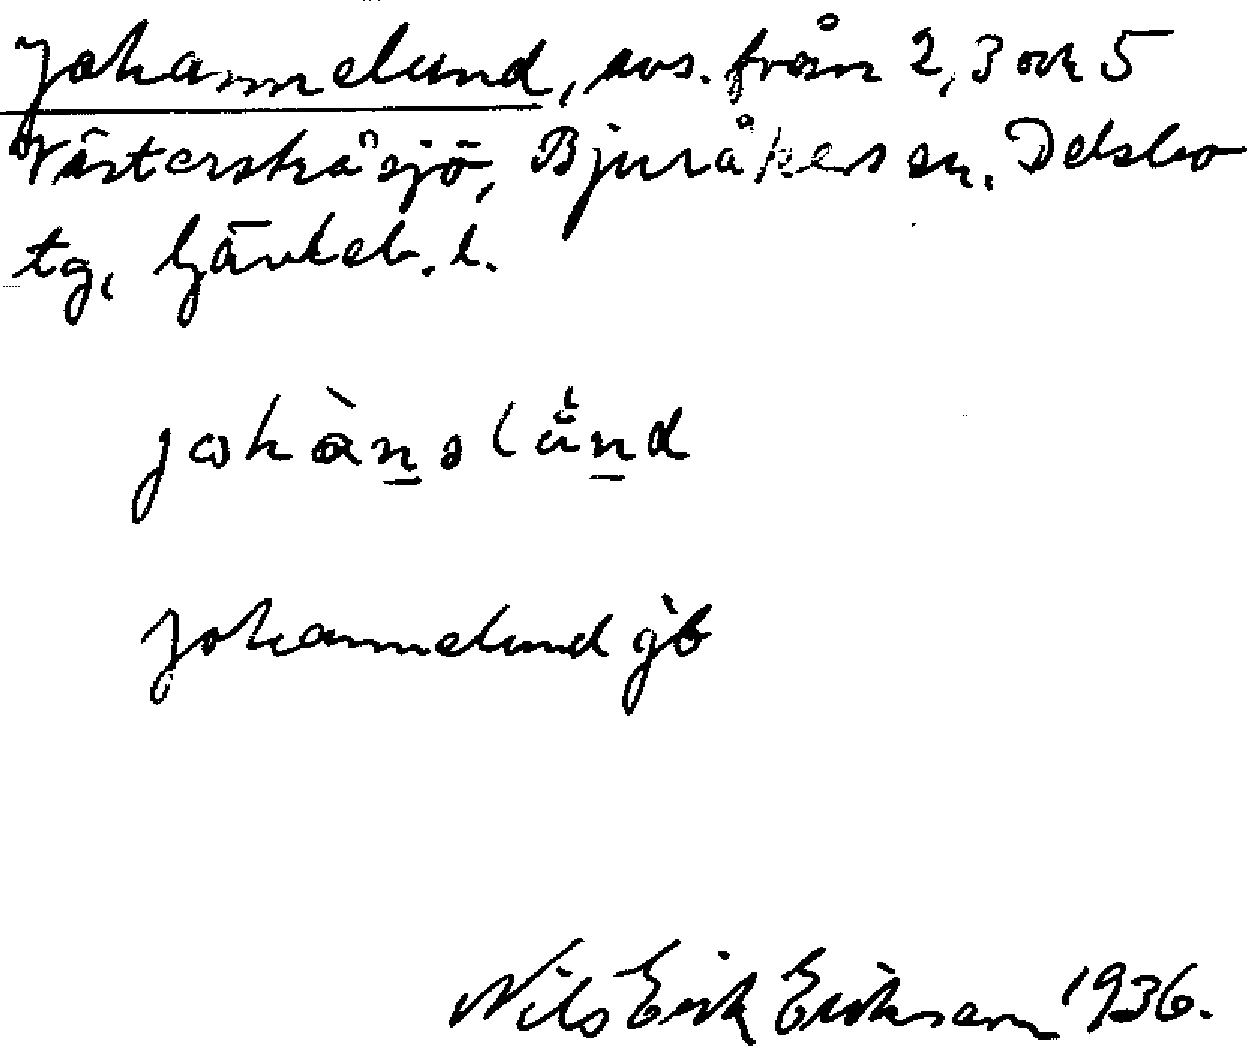 Johannelund, avs. från 2, 3 och 5
Västerskåsjö, Bjuråkers sn, Delsbo
tg, Gävleb. l.
johànəlu̇̀nd
Johannelund gb
Nils Erik Erikson 1936.